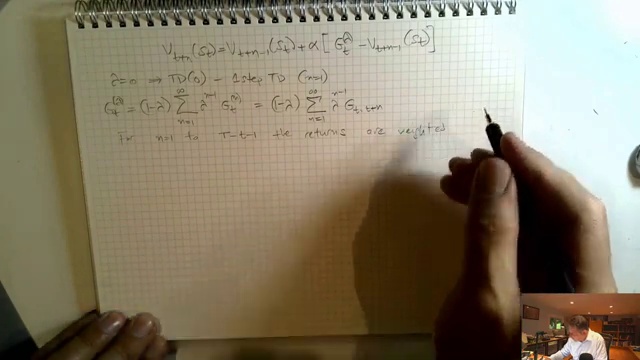 V_{t+n}(S_t) = V_{t+n-1}(S_t) + α[G_t^λ - V_{t+n-1}(S_t)]
λ=0 ⟹ TD(0) - 1 step TD (n=1)
G_t^{(λ)} = (1-λ) ∑_{n=1}^∞ λ^{n-1} G_t^{(n)} = (1-λ) ∑_{n=1}^∞ λ^{n-1} G_{t,t+n}
For n=1 to T-t-1 the returns are weighted